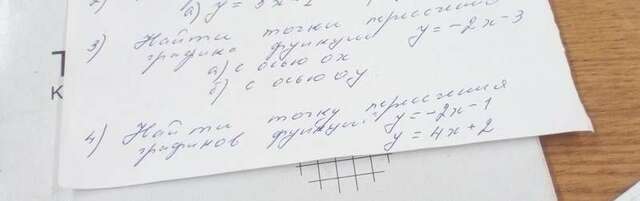 а) y = 3x-
3) Найти точки пересечения
графика функции y = -2x - 3
а) с осью ox
б) с осью oy
4) Найти точку пересечения
графиков функций y = -2x - 1
y = 4x + 2